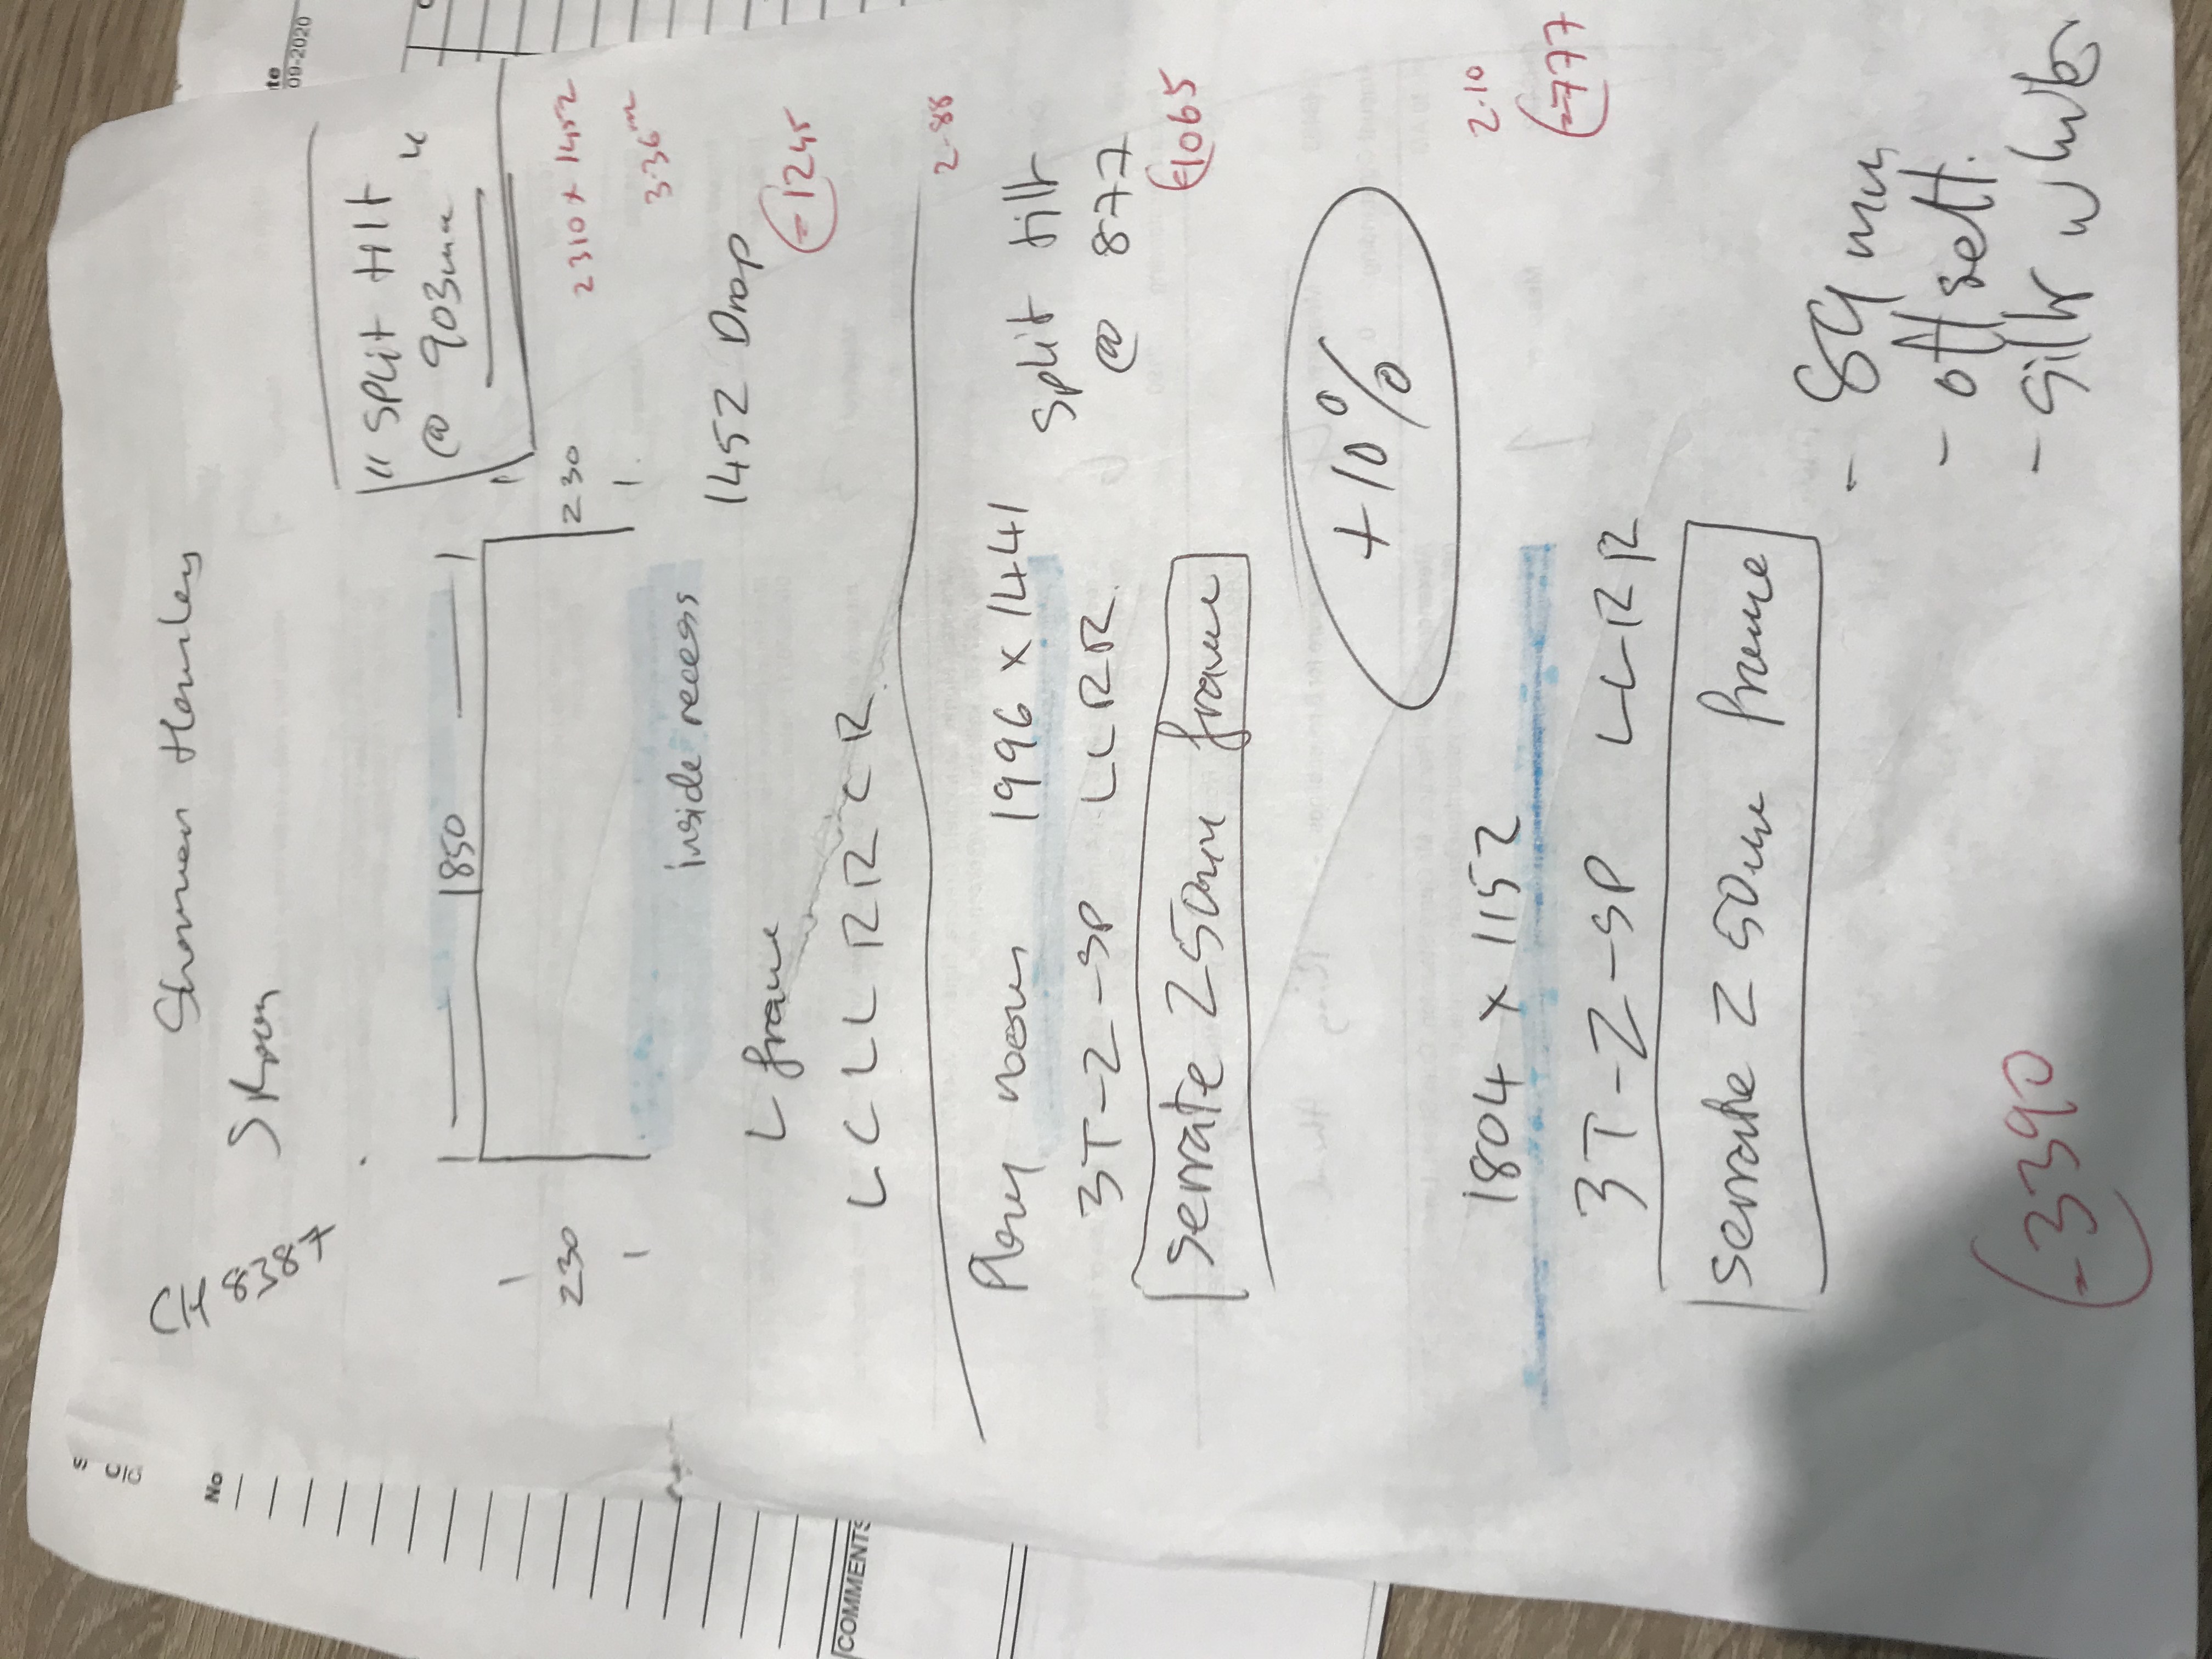 09-2020
Shannen Hanley
8387
"SPLIT tilt "
@ 903mm
1850
230
230
2310 x 1452
3.36m
inside recess
1452 Drop
=1245
L frame
L C L L R R C R
2.88
Play room 1996 x 1441 split tilt
3T-2-SP LLRR @ 877
=1065
serrate Z 50mm frame
+10%
2.10
=777
1804 x 1152
3T-2-SP LLRR
serrate Z 50mm frame
- 89 mm
- offsett.
- silk white
=3390
No
COMMENTS